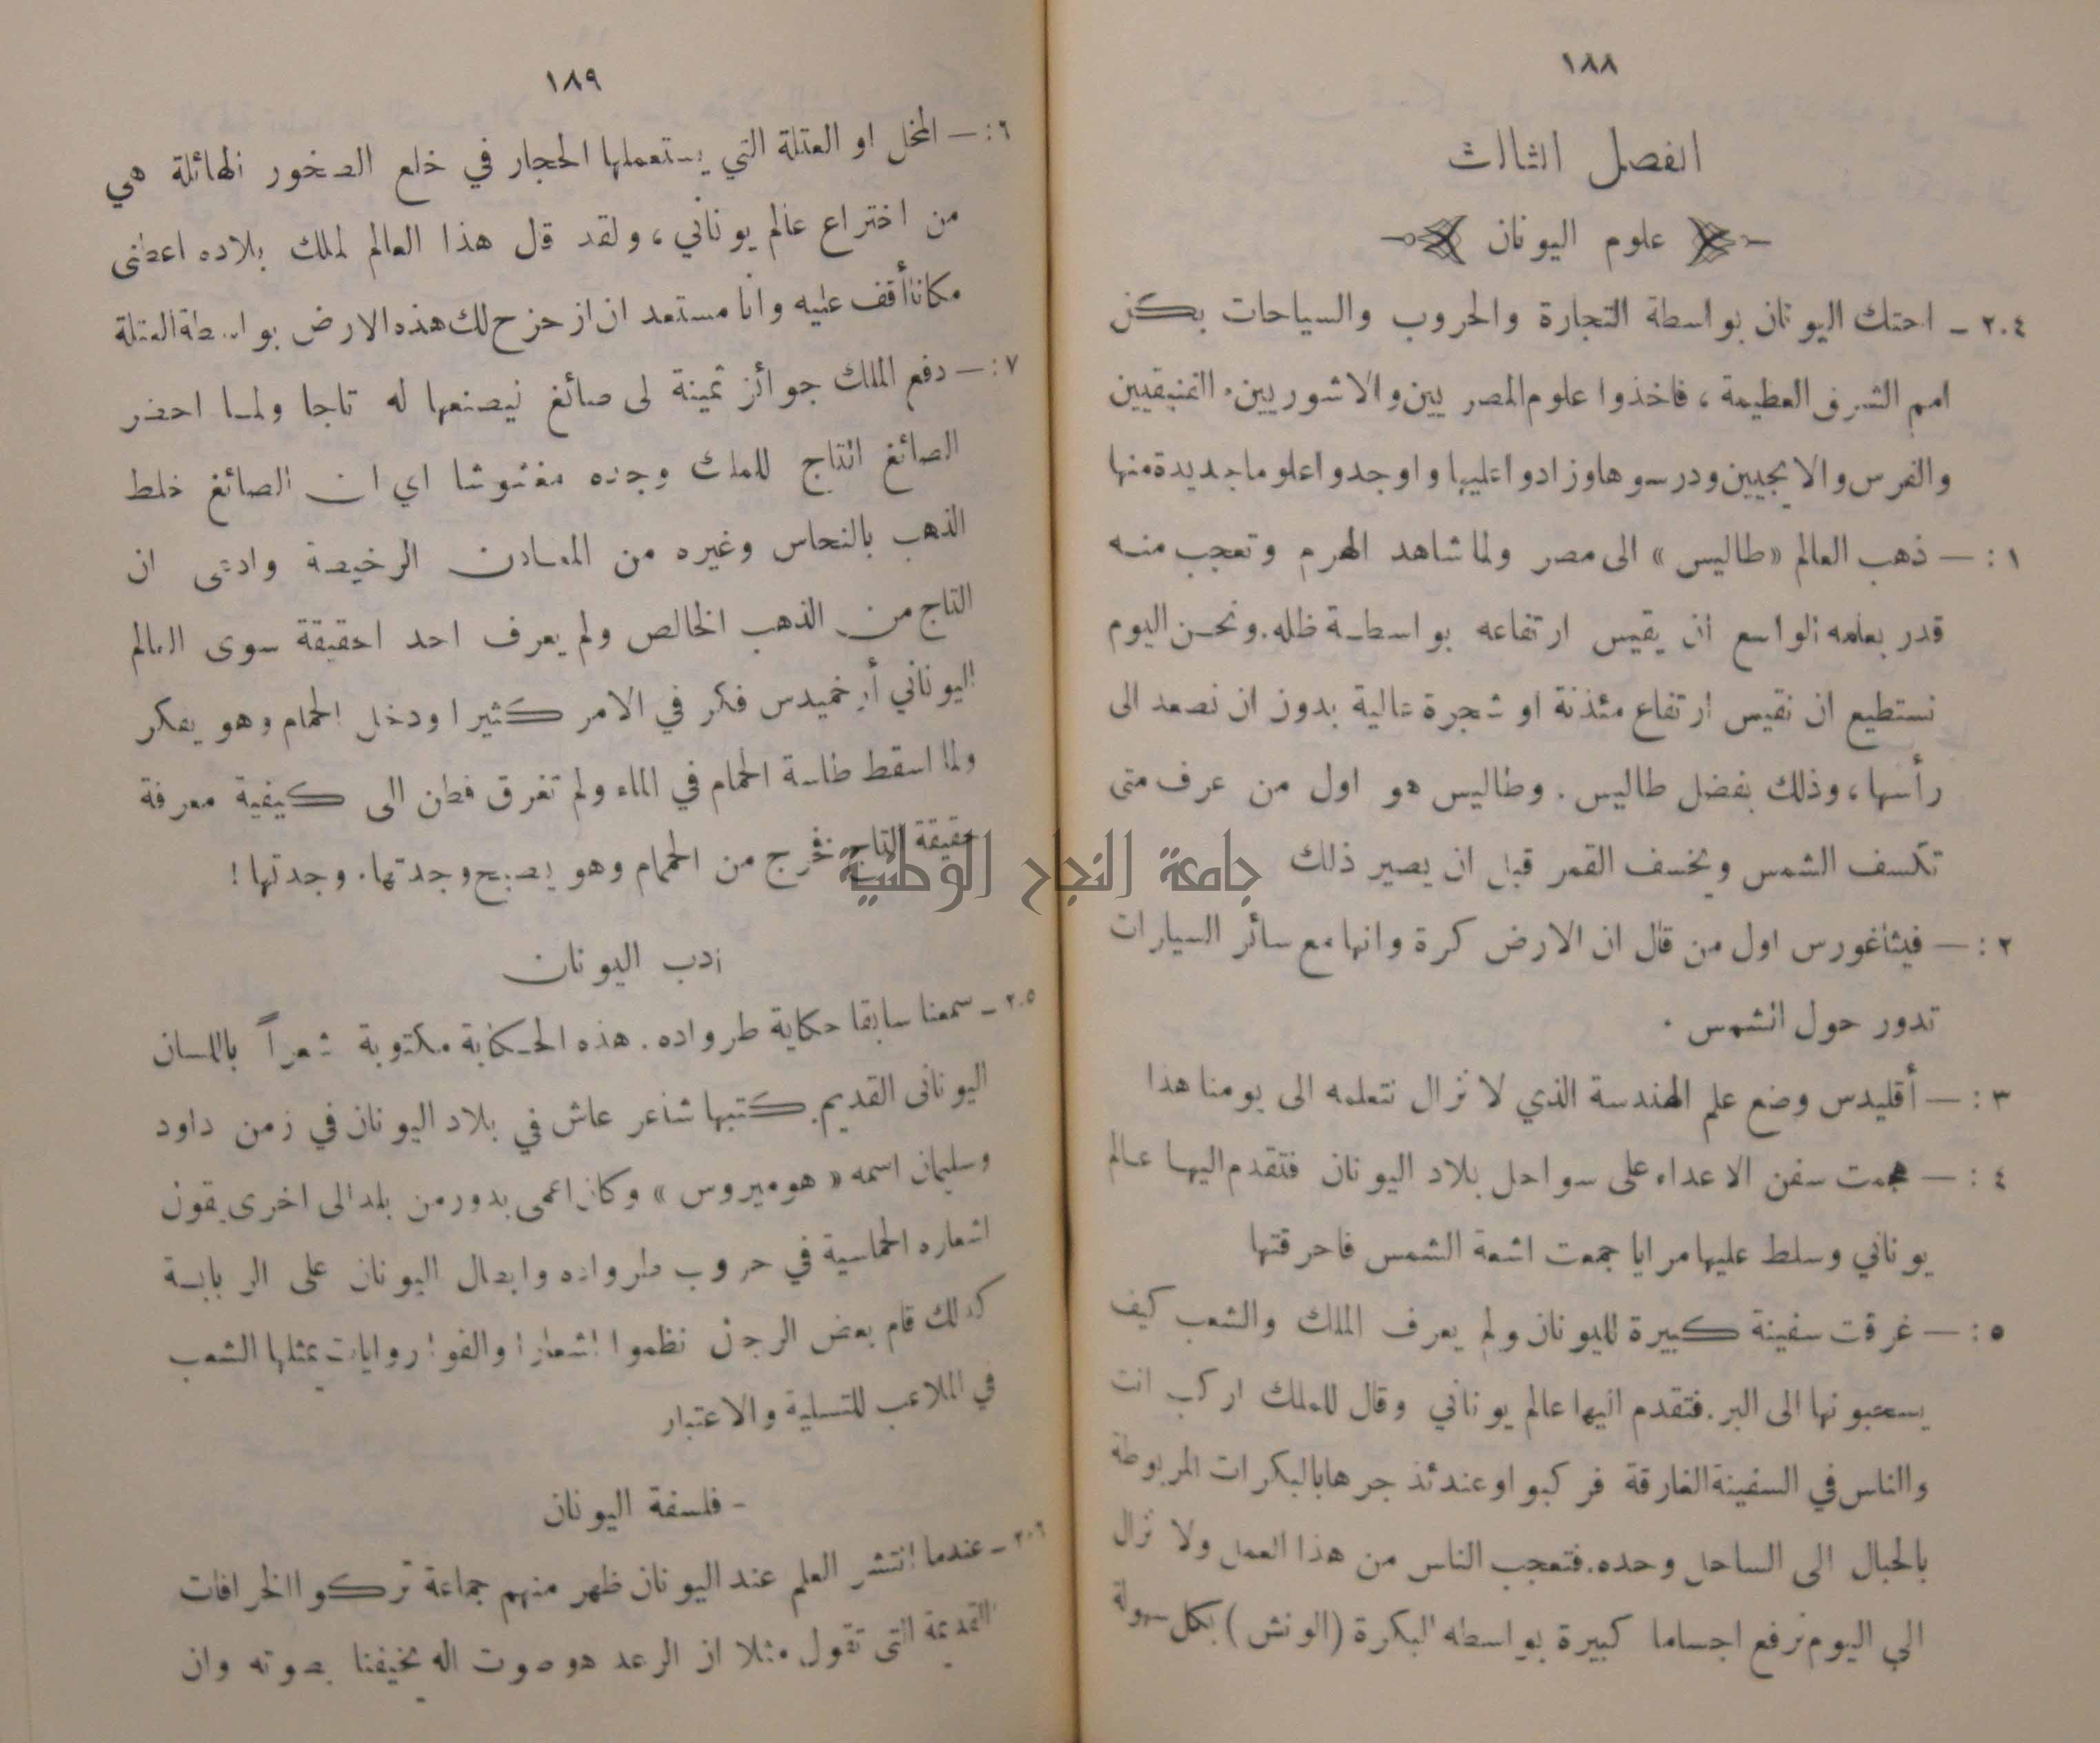 ١٨٨
الفصل الثالث
علوم اليونان
٢٠٤ ـ احتك اليونان بواسطة التجارة والحروب والسياحات بكل
امم الشرق العظيمة ، فاخذوا علوم المصريين والاشوريين والفنيقيين
والفرس والايجيين ودرسوها وزادوا عليها واوجدوا علوما جديدة منها
١ : — ذهب العالم «طاليس» الى مصر ولما شاهد الهرم وتعجب منه
قدر بعلمه الواسع ان يقيس ارتفاعه بواسطة ظله . ونحن اليوم
نستطيع ان نقيس ارتفاع مئذنة او شجرة عالية بدون ان نصعد الى
رأسها ، وذلك بفضل طاليس . وطاليس هو اول من عرف متى
تكسف الشمس ويخسف القمر قبل ان يصير ذلك
٢ : — فيثاغورس اول من قال ان الارض كرة وانها مع سائر السيارات
تدور حول الشمس .
٣ : — أقليدس وضع علم الهندسة الذي لا نزال نتعلمه الى يومنا هذا
٤ : — هجمت سفن الاعداء على سواحل بلاد اليونان فتقدم اليها عالم
يوناني وسلط عليها مرايا جمعت اشعة الشمس فاحرقتها
٥ : — غرقت سفينة كبيرة لليونان ولم يعرف الملك والشعب كيف
يسحبونها الى البر . فتقدم اليها عالم يوناني وقال للملك اركب انت
والناس في السفينة الغارقة فركبوا وعندئذ جرها بالبكرات المربوطة
بالحبال الى الساحل وحده . فتعجب الناس من هذا العمل ولا نزال
الى اليوم نرفع اجساما كبيرة بواسطه البكرة (الونش) بكل سهولة
١٨٩
٦ : — المخل او العتلة التي يستعملها الحجار في خلع الصخور الهائلة هي
من اختراع عالم يوناني ، ولقد قال هذا العالم لملك بلاده اعطني
مكانا أقف عليه وانا مستعد ان ازحزح لك هذه الارض بواسطة العتلة
٧ : — دفع الملك جوائز ثمينة لى صائغ ليصنعها له تاجا ولما احضر
الصائغ التاج للملك وجده مغشوشا اي ان الصائغ خلط
الذهب بالنحاس وغيره من المعادن الرخيصة وادعى ان
التاج من الذهب الخالص ولم يعرف احد احقيقة سوى العالم
اليوناني أرخميدس فكر في الامر كثيرا ودخل الحمام وهو يفكر
ولما اسقط طاسة الحمام في الماء ولم تغرق فطن الى كيفية معرفة
حقيقة التاج فخرج من الحمام وهو يصيح وجدتها . وجدتها !
ادب اليونان
٢٠٥ ـ سمعنا سابقا حكاية طرواده . هذه الحكاية مكتوبة شعراً باللسان
اليونانى القديم . كتبها شاعر عاش في بلاد اليونان في زمن داود
وسليمان اسمه « هوميروس » وكان اعمى يدور من بلد الى اخرى يقول
اشعاره الحماسية في حروب طرواده وابطال اليونان على الربابة
كذلك قام بعض الرجال نظموا اشعارا والفوا روايات يمثلها الشعب
في الملاعب للتسلية والاعتبار
- فلسفة اليونان
٢٠٦ ـ عندما انتشر العلم عند اليونان ظهر منهم جماعة تركوا الخرافات
القديمة التى تقول مثلا ان الرعد هو صوت اله يخيفنا بصوته وان
جامعة النجاح الوطنية